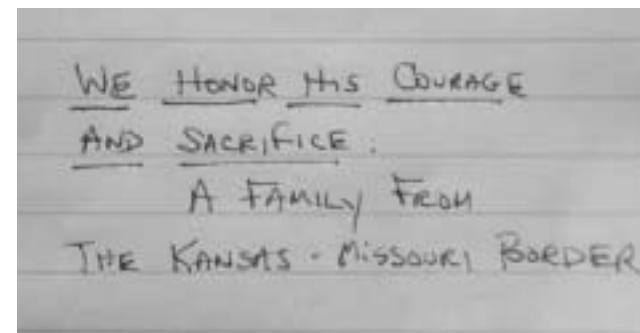 WE HONOR HIS COURAGE
AND SACRIFICE.
A FAMILY FROM
THE KANSAS - MISSOURI BORDER